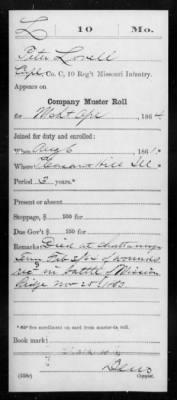 L 10 Mo.
Peter Lovell
Capt., Co. C, 10 Reg't Missouri Infantry.
Appears on
Company Muster Roll
for Mch & Apl, 1864
Joined for duty and enrolled:
When Aug 6, 1861.
Where Pleasant Hill Ill
Period 3 years.*
Present or absent
Stoppage, $ 100 for
Due Gov't $ 100 for
Remarks: Died at Chattanooga
Tenn Feb of wounds
rec'd in battle of Mission
Ridge Nov 25 1863
*See enrollment on card from muster-in roll.
Book mark:
(358)
Copyist.